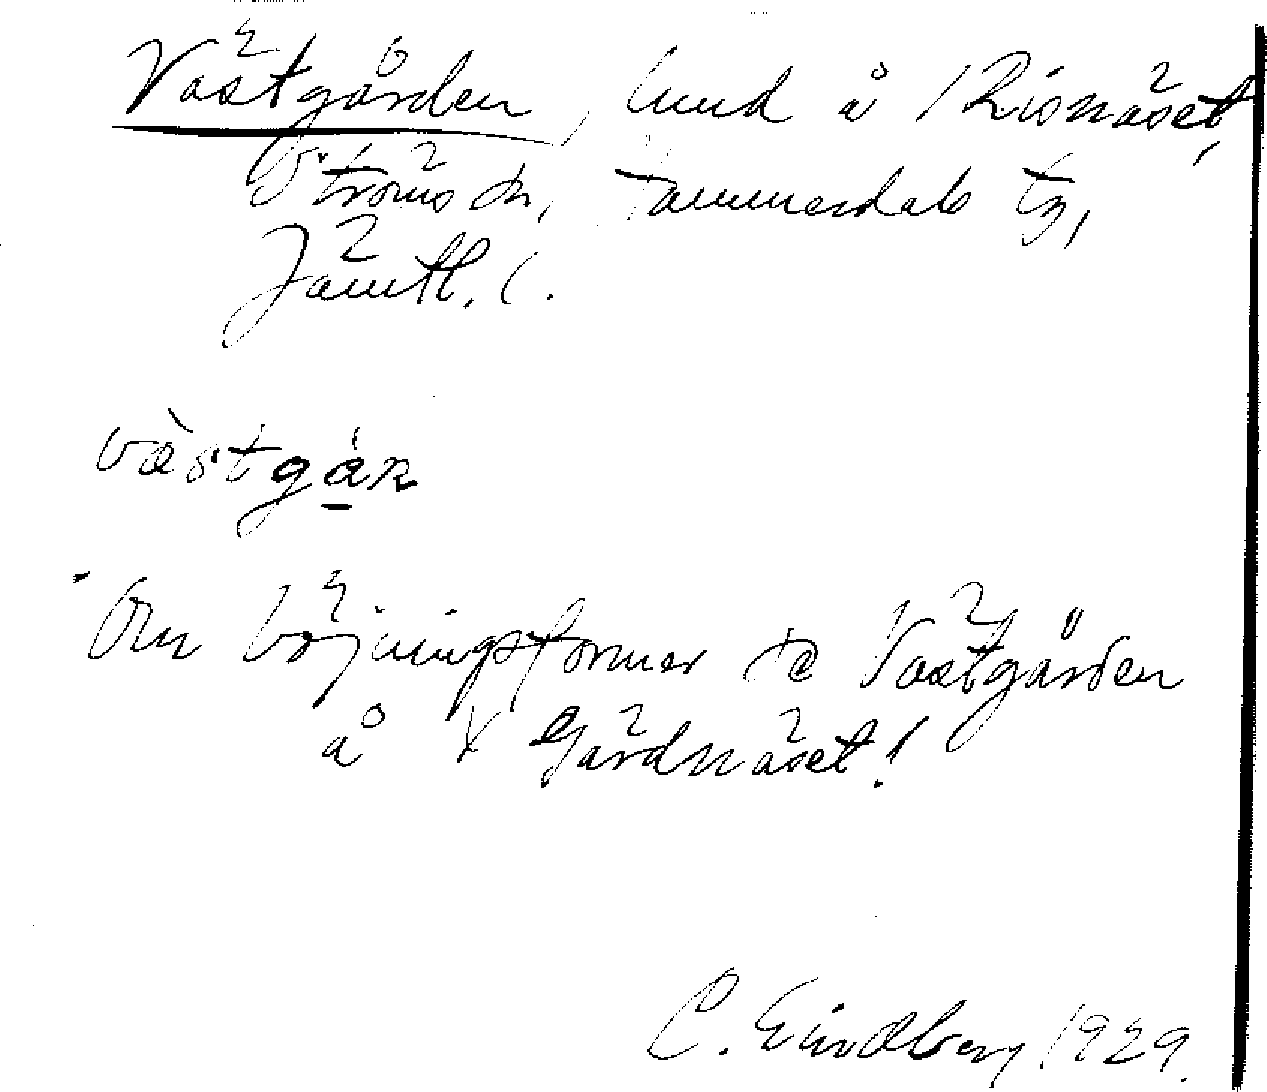 Västgården, lund å Risnäset,
Ströms sn, Hammerdals tg,
Jämtl. l.
västgár̲n
Om böjningsformer se Västgården
å Gärdnäset!
C. Lindberg 1929.